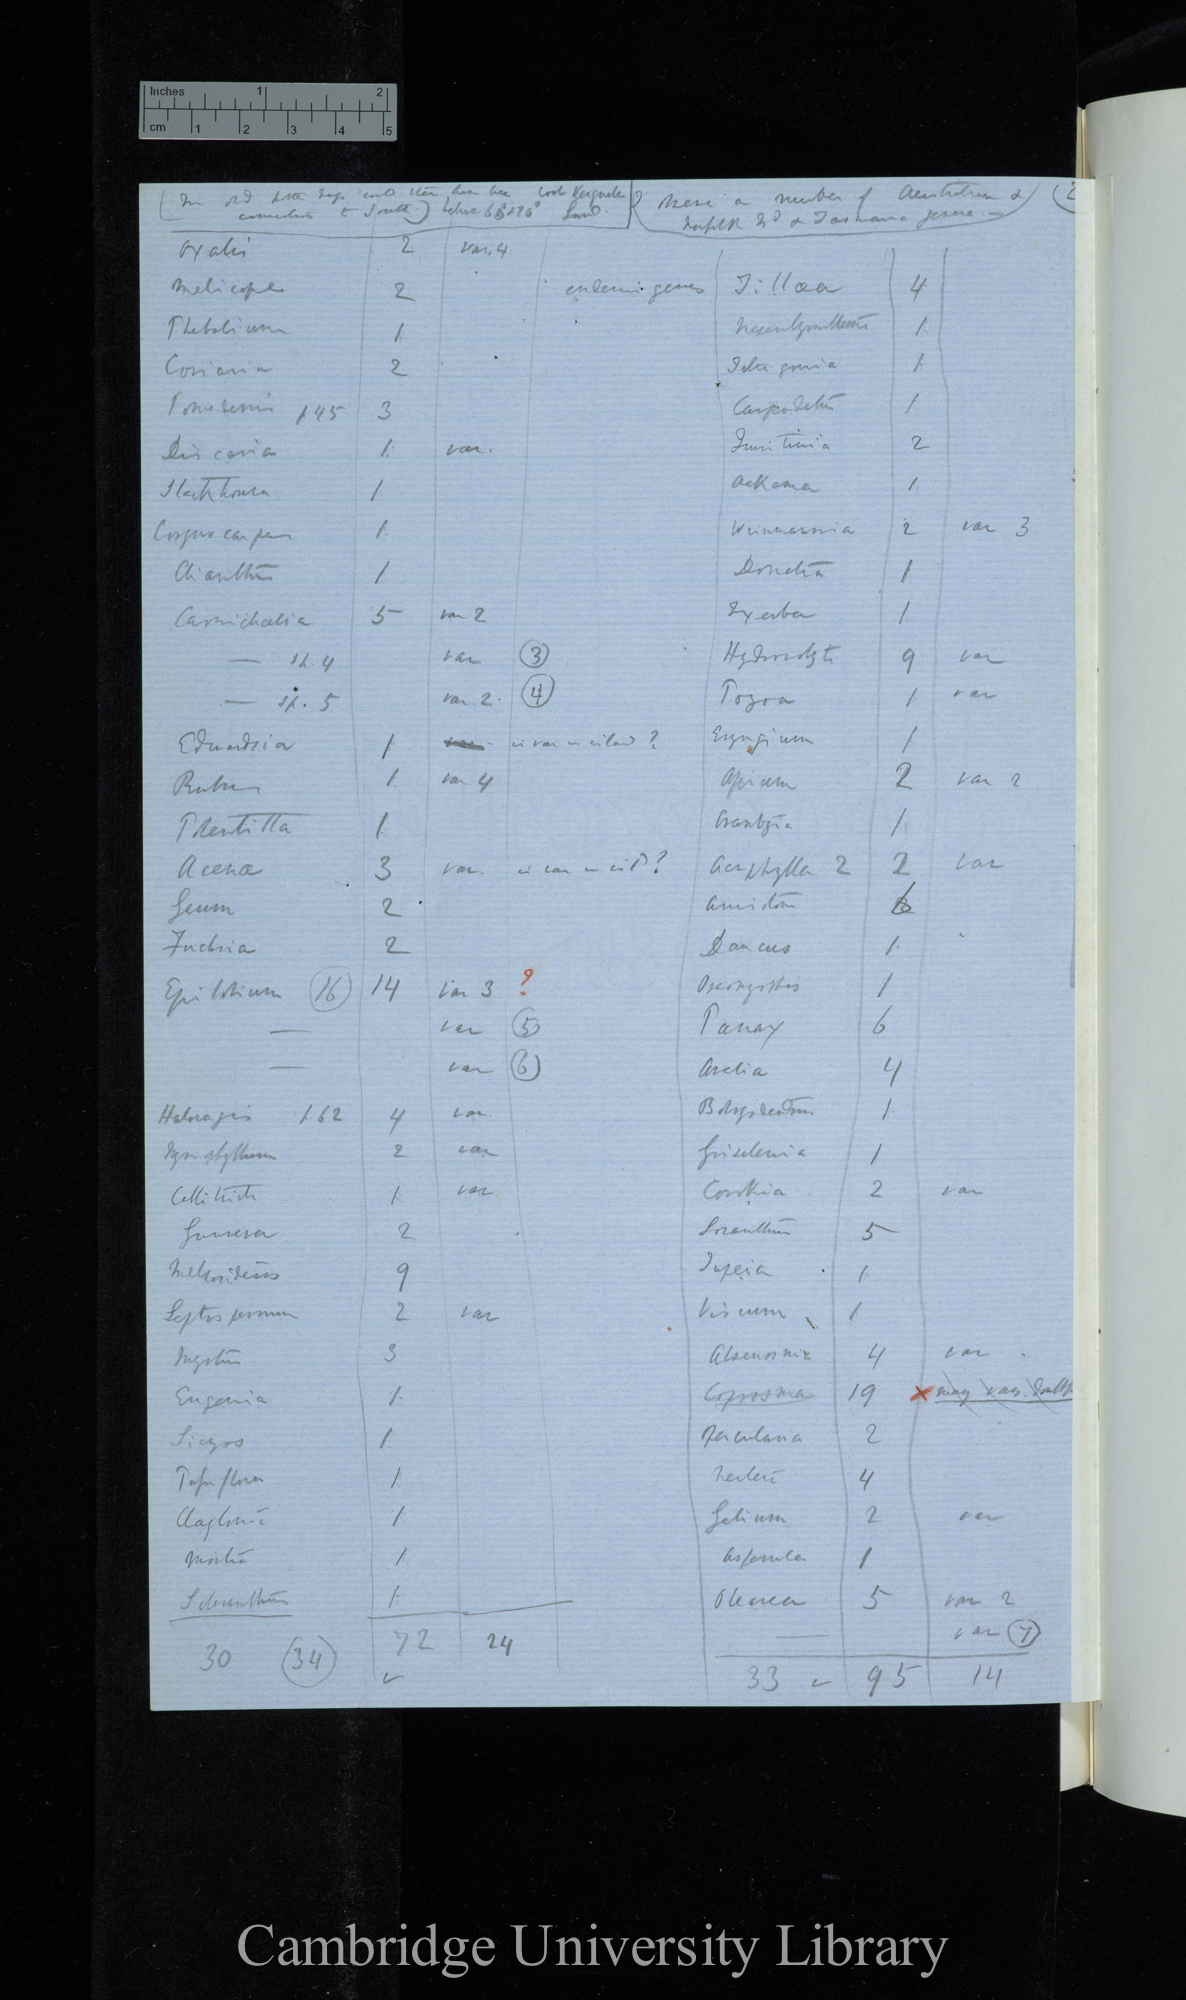 Inches 1 2
cm 1 2 3 4 5
(In old hotter days could there have been
connection to South.) before
Land.
These a number of Australian &
Norfolk Isd & Tasmania genera.—
(2
Oxalis 2 var. 4
Melicope 2 endemic genus
Phebalium 1
Coriaria 2
Pomaderris p 45 3
Discaria 1 var.
Stackhousia 1
Corynocarpus 1
Clianthus 1
Carmichaelia 5 var 2
— sp. 4 var (3)
— sp. 5 var 2. (4)
Edwardsia 1 var
Rubus 1 var 4
Potentilla 1
Acena 3 var.
Geum 2
Fuchsia 2
Epilobium (16) 14 var 3 ?
— var (5)
— var (6)
Haloragis p. 62 4 var.
Myriophyllum 2 var
Callitriche 1 var
Gunnera 2
Metrosideros 9
Leptospermum 2 var
Myrtus 3
Eugenia 1
Sicyos 1
Passiflora 1
Claytonia 1
Montia 1
Scleranthus 1
30 (34) 72 24
Tillaea 4
Mesembryanthemum 1
Tetragonia 1
Carpodetus 1
2
Ackama 1
Weinmannia 2 var 3
Donatia 1
Ixerba 1
Hydrocotyle 9 var
Pozoa 1 var
Eryngium 1
Apium 2 var 2
Crantzia 1
Aciphylla 2 2 var
Anisotome 6
Daucus 1
1
Panax 6
Aralia 4
Botryodendrum 1
Griselinia 1
Corokia 2 var
Loranthus 5
Tupeia 1
Viscum 1
Alseuosmia 4 var
Coprosma 19 x many var. doubtful
Opercularia 2
Nertera 4
Galium 2 var
Asperula 1
Olearia 5 var 2
— var (7)
33 95 14
Cambridge University Library